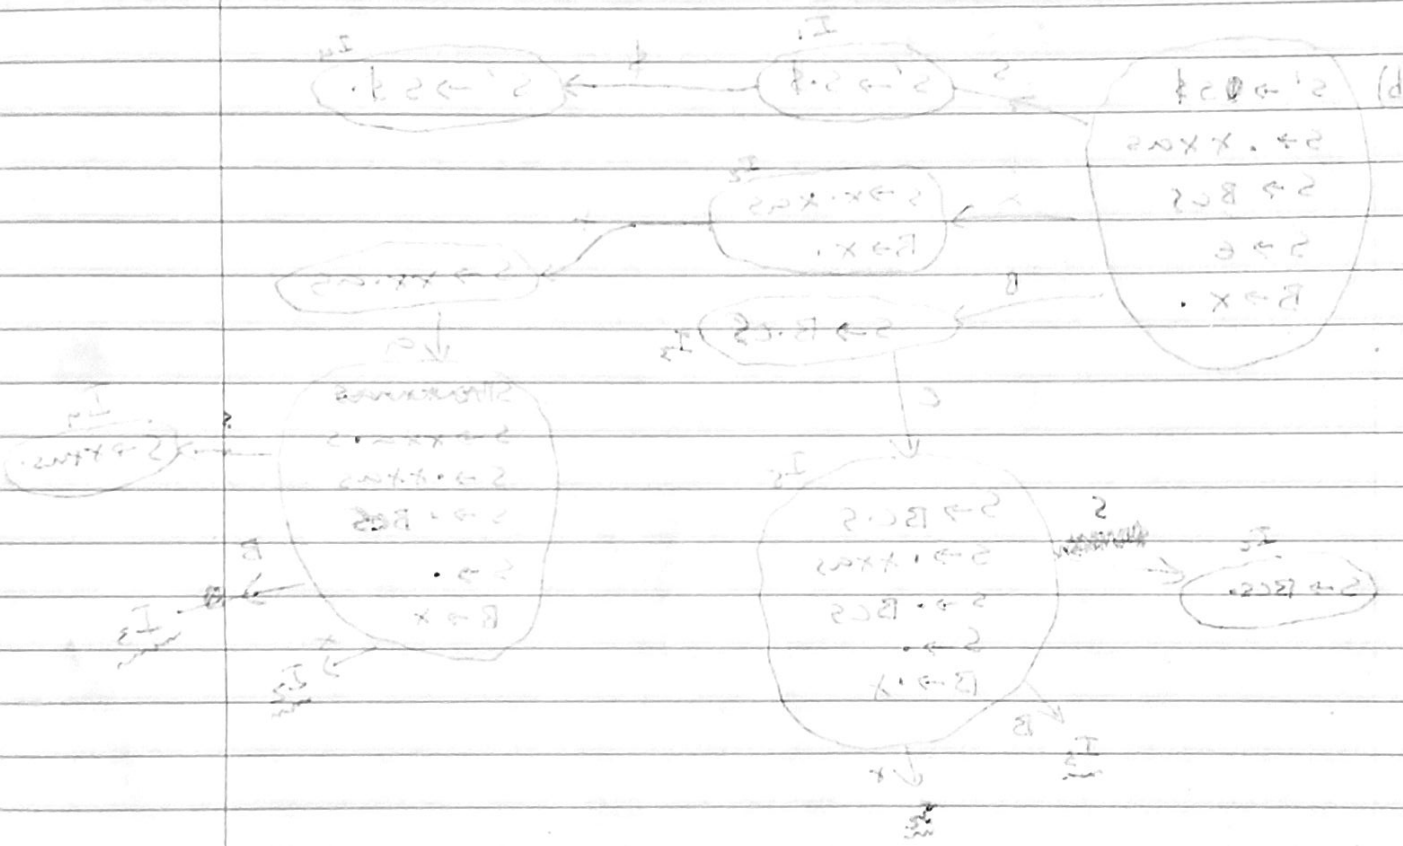 b)
S' → S$
S → . xxas
S → BcS
S → ε
B → x .
S
I₁
S' → S.$
$
I₄
S' → S$.
x
I₂
S → x.xas
B → x.
x
S → xx.as
B
I₃
S → B.cS
c
I₅
S → Bc.S
S → .xxas
S → .BcS
S → .
B → .x
S
S → BcS.
B
x
a
S → xxa.s
S → .xxas
S → .BcS
S → .
B → x
S → xxas.
B
I₃
x
I₂